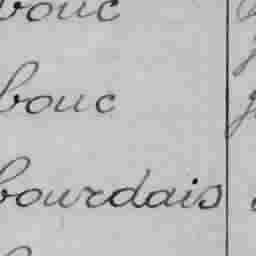 bouc
bouc
bourdais